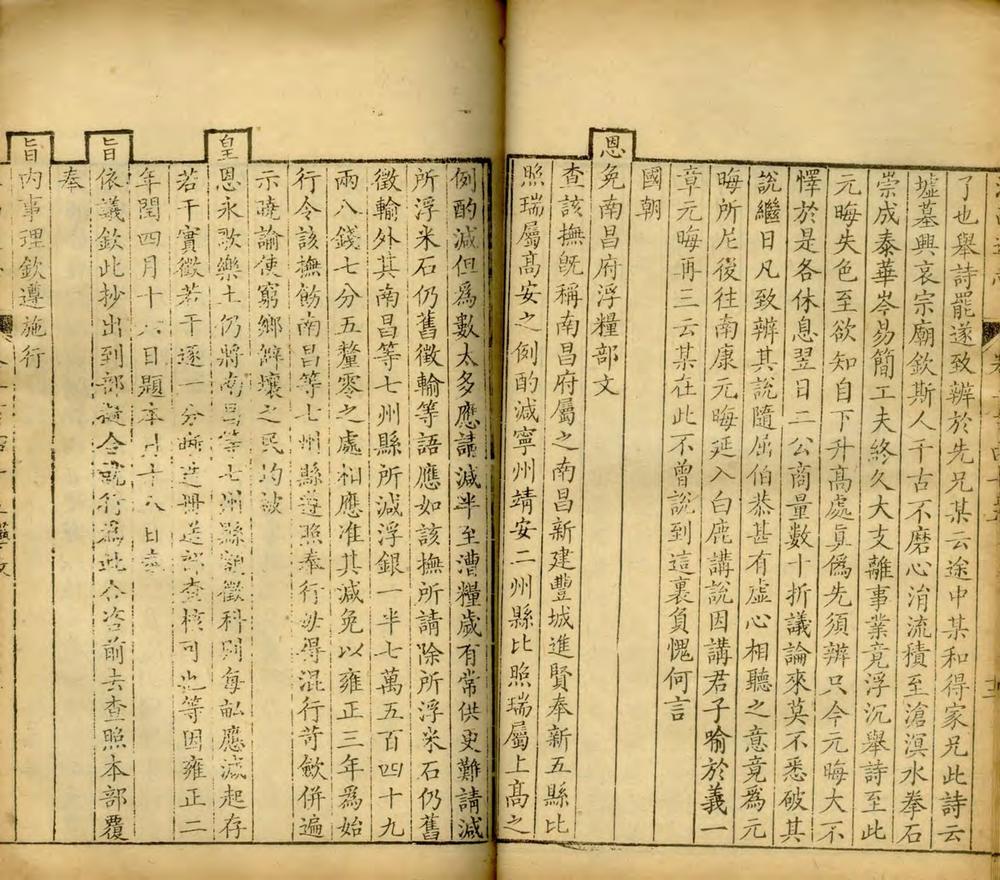 了也舉詩罷遂致辨於先兄某云途中某和得家兄此詩云
墟墓興哀宗廟欽斯人千古不磨心涓流積至滄溟水拳石
崇成泰華岑易簡工夫終久大支離事業竟浮沉舉詩至此
元晦失色至欲知自下升高處眞僞先須辨只今元晦大不
懌於是各休息翌日二公商量數十折議論來莫不悉破其
說繼日凡致辨其說隨屈伯恭甚有虛心相聽之意竟爲元
晦所尼後往南康元晦延入白鹿講說因講君子喻於義一
章元晦再三云某在此不曾說到這裏負愧何言
國朝
恩免南昌府浮糧部文
查該撫旣稱南昌府屬之南昌新建豐城進賢奉新五縣比
照瑞屬高安之例酌減寧州靖安二州縣比照瑞屬上高之
例酌減但爲數太多應請減半至漕糧歲有常供更難請減
所浮米石仍舊徵輸等語應如該撫所請除所浮米石仍舊
徵輸外其南昌等七州縣所減浮銀一半七萬五百四十九
兩八錢七分五釐零之處相應准其減免以雍正三年爲始
行令該撫飭南昌等七州縣遵照奉行毋得混行苛歛併遍
示曉諭使窮鄉僻壤之民均被
皇恩永歌樂土仍將南昌等七州縣額徵科則每畝應減起存
若干實徵若干逐一分晰造册送部查核可也等因雍正二
年閏四月十六日題本月十八日奉
旨依議欽此抄出到部擬合就行爲此合咨前去查照本部覆
奉
旨內事理欽遵施行